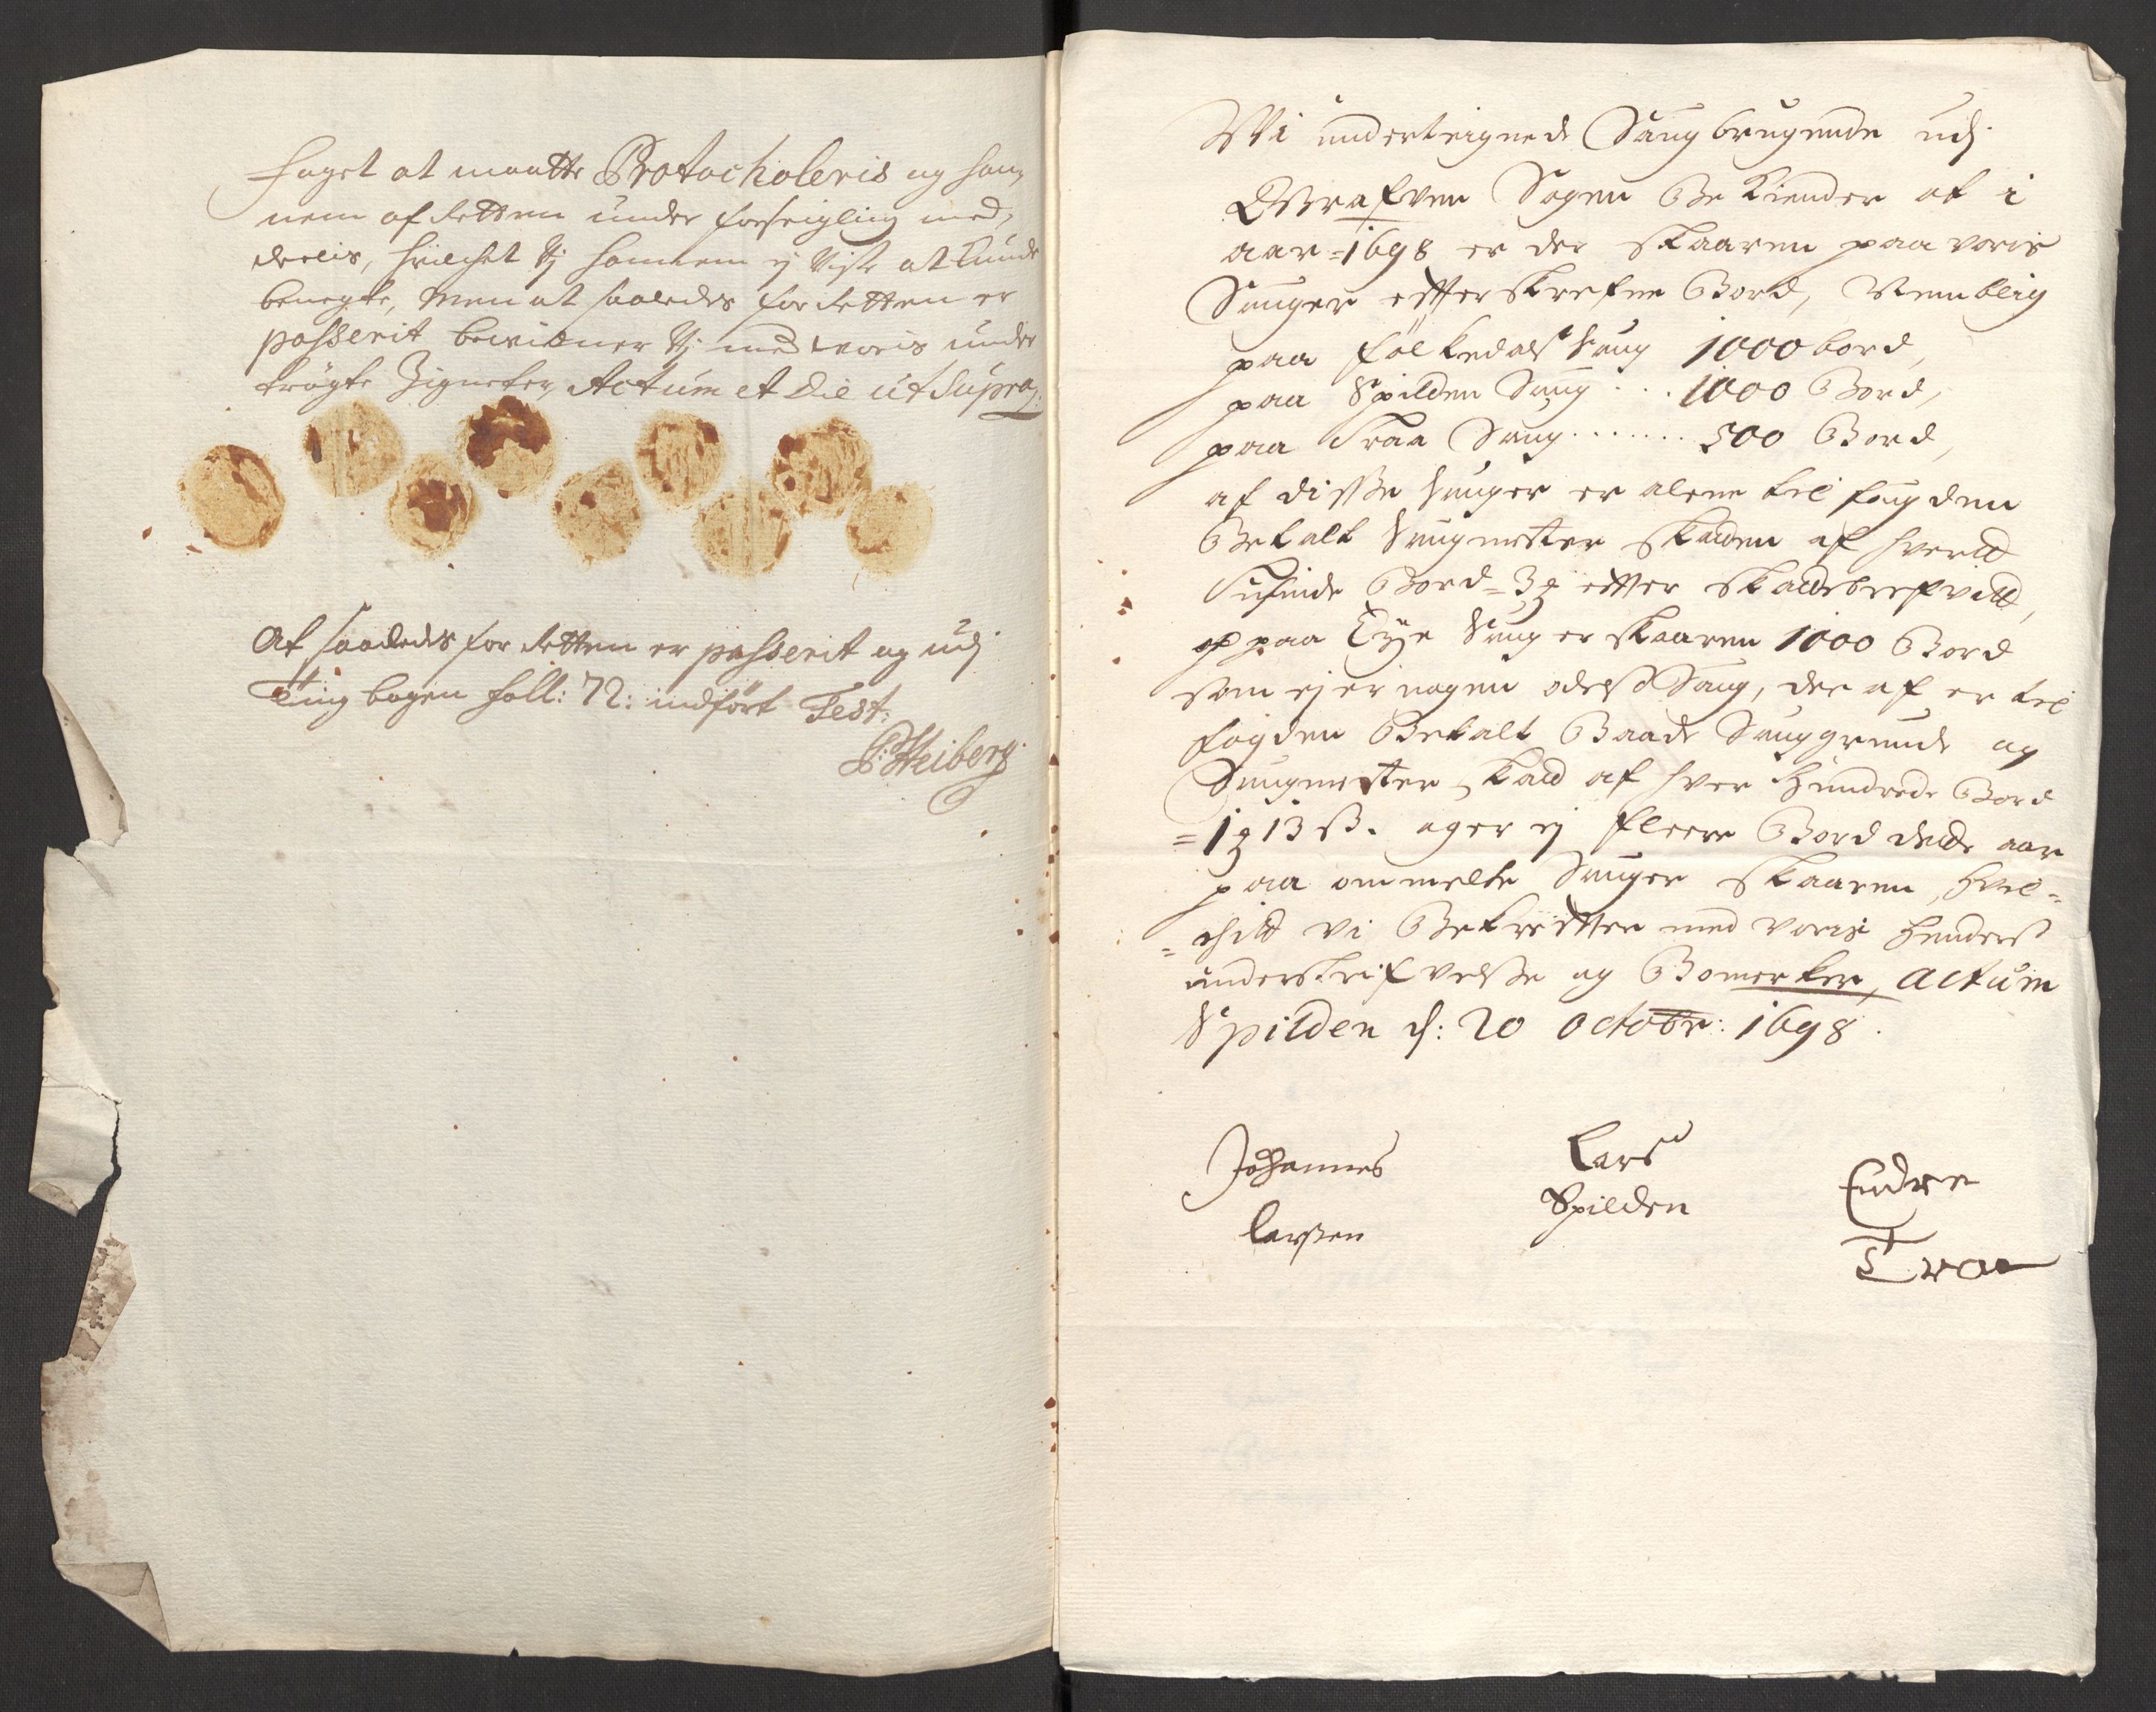 saget at maatte Protocholeris og han,
nem af Retten under forseigling med,
deelis, hvilchet Vj hannem ej Viste at kunde
benegte, Men at saaledes for Retten er
passerit beviduer Vj med voris under
trögte Zigneter, Actum et Die ut Supra,
At saaledes for Retten er passerit og udj
Ting bogen foll: 72: indfört Test:
P: Heiberg
Wi underteignede Saugbrugende udj
Grafven Sogen Be kiender at i
aar = 1698 er der skaaren paa voris
Sauger effterskrefne Bord, Nemblig
paa Folkedals Saug 1000 bord,
paa Spilden Saug . . . 1000 Bord,
paa Traa Saug . . . . . . . 500 Bord,
af disse Sauger er alene til fougden
Betalt Saugmester skatten af hvert
Tusinde Bord = 3 effter skattebrefvet,
og paa Eyje Saug er skaaren 1000 Bord
som ej er nogen odels Saug, der af er til
fogden Betalt Baade Sauggrunde og
Saugmester skatt af hver Hundrede Bord
= 1 13 ß. og er ej fleere Bord dette aar
paa ommelte Sauger skaaren, hvil=
=chitt vi Bekreffter med voris henders
underskrifvelse og Bomerker, Actum
Spilden d: 20 Octobr: 1698.
Johannes
Larsen
Lars
Spilden
Endre
Traa